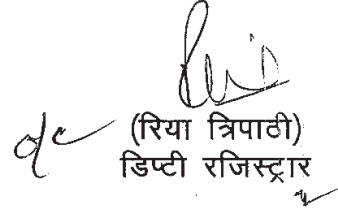 (रिया त्रिपाठी)
डिप्टी रजिस्ट्रार